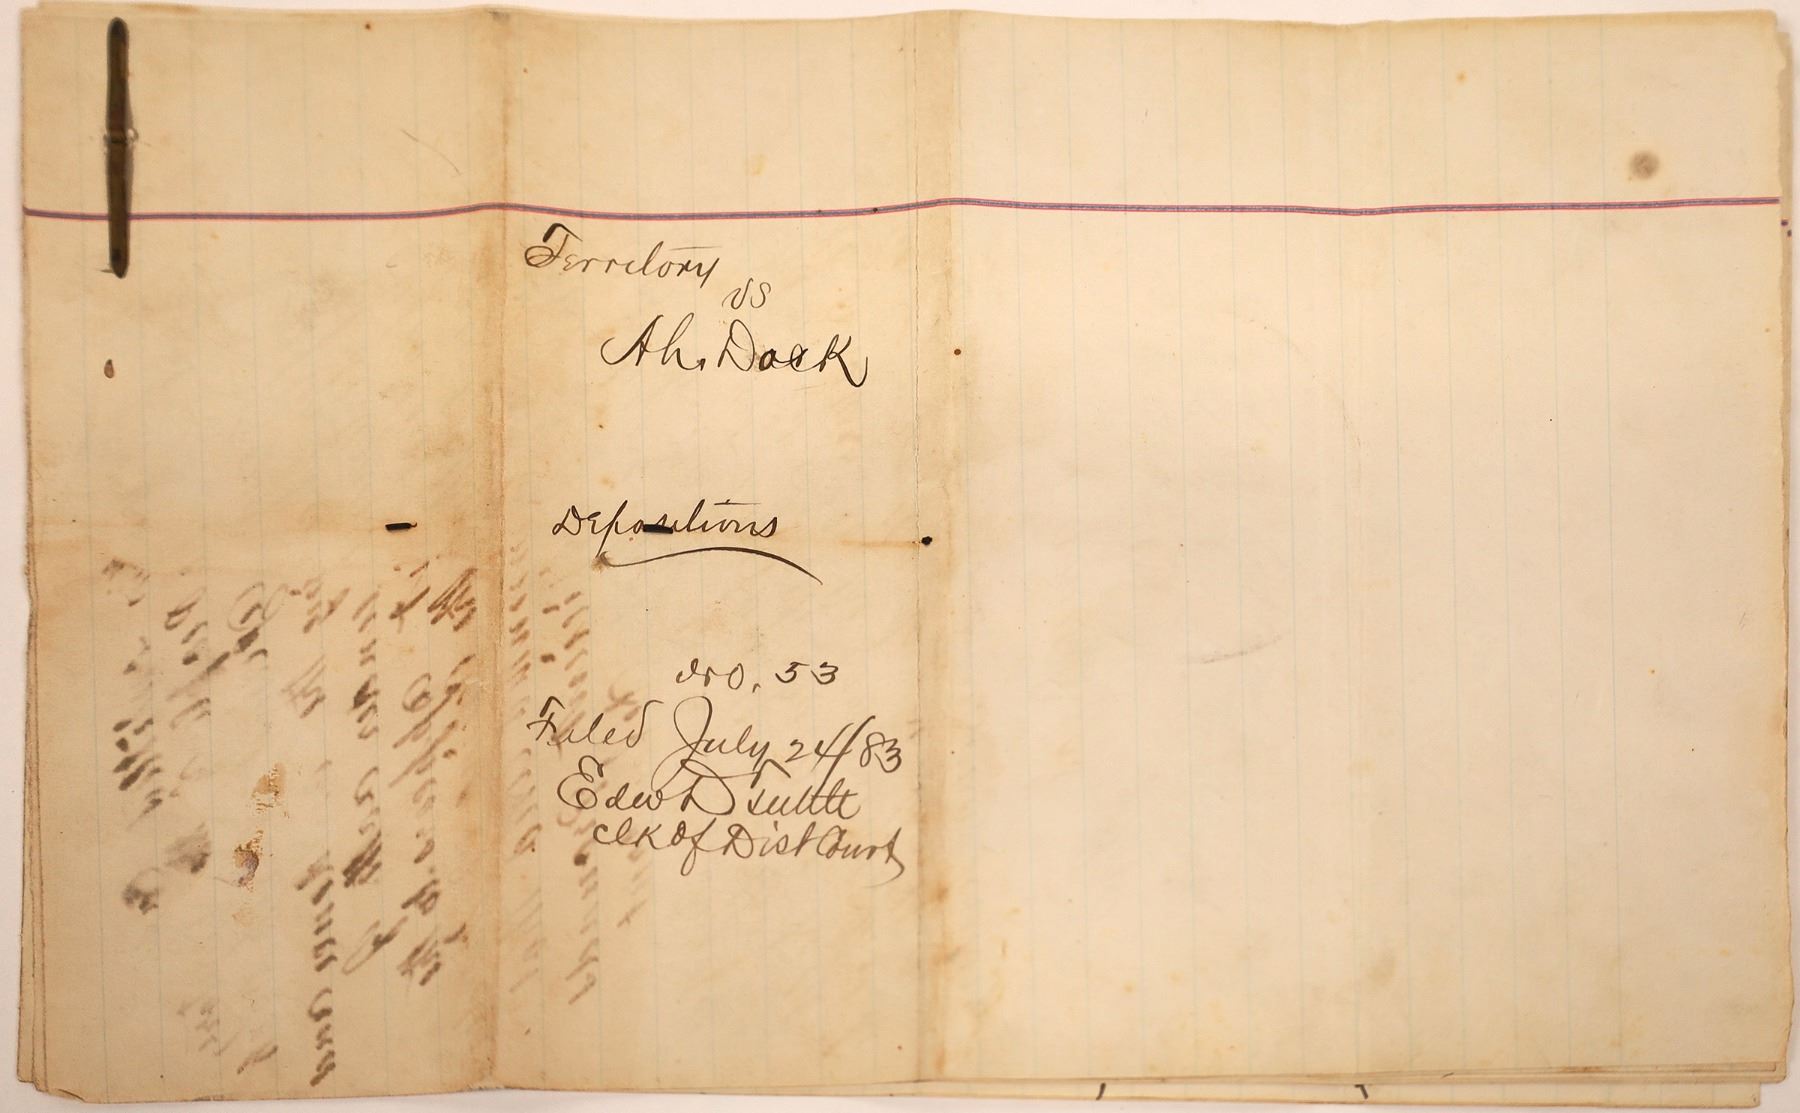 Territory
vs
Ah. Dock
Depositions
No. 53
Filed July 24/83
Edw D Tuttle
Clk of Dist Court